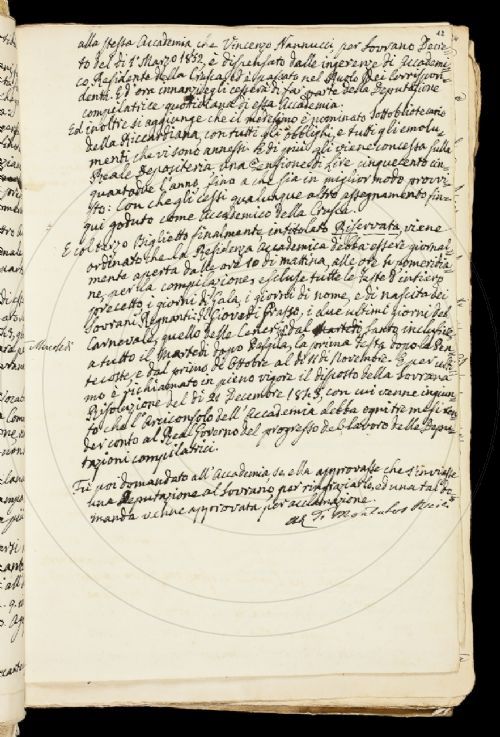 12
alla stessa Accademia che Vincenzo Nannucci per Sovrano Decre-
to del dì 1° Marzo 1852 è dispensato dalle ingerenze di Accademi-
co Residente della Crusca, ed è passato nel Ruolo dei Corrispon-
denti. E d'ora innanzi egli cesserà di far parte della Deputazione
compilatrice quotidiana di essa Accademia.
Ed inoltre si aggiunge che il medesimo è nominato Sottobibliotecario
della Riccardiana, con tutti gli obblighi, e tutti gli emolu-
menti che vi sono annessi. E di più gli viene concessa sulla
Reale Depositeria una Pensione di Lire cinquecento cin-
quantadue l'anno fino a che sia in miglior modo provvi-
sto: Con che gli cessi qualunque altro assegnamento fin-
qui goduto come Accademico della Crusca.
E col terzo Biglietto finalmente intitolato Riservata, viene
ordinato che la Residenza Accademica debba essere giornal-
mente aperta dalle ore 10 di mattina, alle ore pomeridia-
ne, per la compilazione, escluse tutte le feste d'intiero
precetto, i giorni di Gala, i giorni di nome, e di nascita dei
Sovrani Regnanti: il Giovedì Grasso, i due ultimi giorni del
Carnevale, quello delle Ceneri; dal Santo inclusive
Mercoledì
a tutto il Martedì dopo Pasqua, la prima festa dopo la Pen-
tecoste, e dal primo di Ottobre al dì 11 di Novembre. E per ulti-
mo è richiamato in pieno vigore il disposto della Sovrana
Risoluzione del dì 21 Dicembre 1843, con cui venne ingiun-
to che l'Arciconsolo dell'Accademia debba ogni tre mesi ren-
der conto al Real Governo del progresso del lavoro delle Depu-
tazioni compilatrici.
Fu poi domandato all'Accademia, se ella approvasse che s'inviasse
una Deputazione al Sovrano per ringraziarlo, ed una tal do-
manda venne approvata per acclamazione.